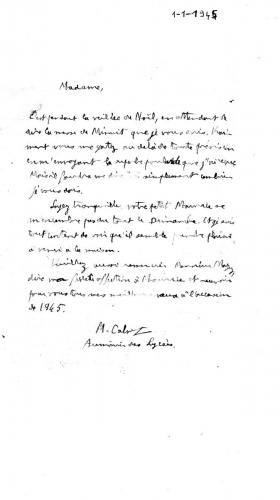 1-1-1945
Madame,
C'est pendant la veillée de Noël, en attendant de
dire la messe de Minuit que je vous écris. Vrai-
ment vous me gâtez au delà de toute prévision
en m'envoyant la superbe poularde que j'ai reçue
simplement combien
je vous dois.
Soyez tranquille votre petit ne
m'encombre pas du tout le Dimanche. Et je suis
tout content de voir qu'il semble prendre plaisir
à venir à la maison.
Veuillez aussi Monsieur
dire affection à et recevoir
pour vous tous mes meilleurs vœux à l'occasion
de 1945.
Aumônier des Lycées